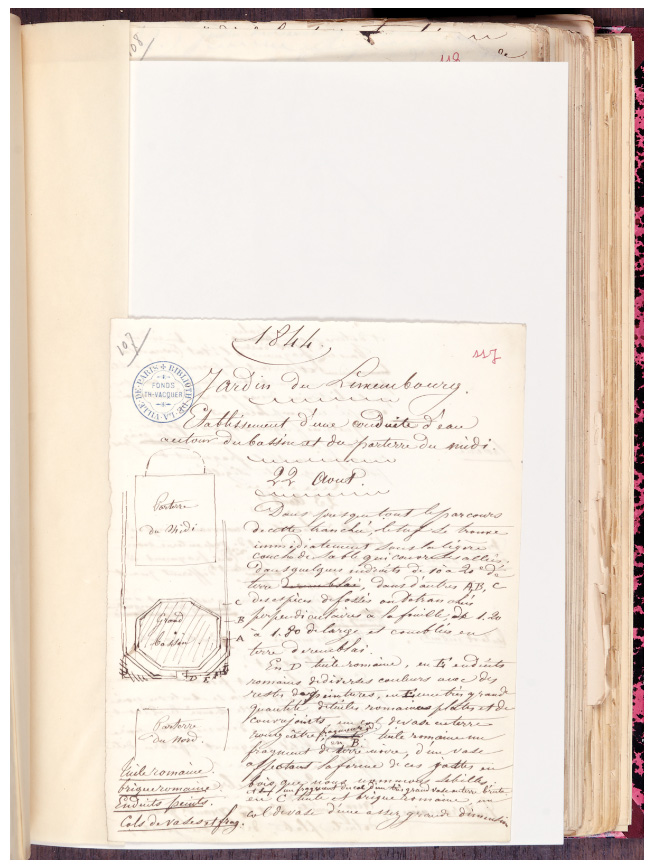 108
118
107
1844.
117
BIBLIOTH. DE LA VILLE DE PARIS
FONDS
TH-VACQUER
Jardin du Luxembourg.
Etablissement d'une conduite d'eau
autour du bassin et du parterre du midi.
22 Aout.
Parterre
du Midi
Grand
bassin
C
B
A
Parterre
du Nord.
Tuile romaine.
brique romaine.
Enduits peints.
Cols de vases et frag.
Dans presque tout le parcours
de cette tranchée, le tuf se trouve
immédiatement sous la légère
couche de sable qui couvre les allées.
dans quelques endroits de 10 a 20 c de
terre de remblai, dans d'autres A, B, C
des espèces de fossés ou
perpendiculaires a la feuille, de 1.20
a 1.80 de large et comblés en
terre de remblai.
En D tuile romaine, en enduits
romains de diverses couleurs avec des
restes de peintures, en une très grande
quantité de tuiles romaines plates et de
couvrejoints, un col de vase en terre
rougeâtre
en B. tuile romaine un
fragment de terre noire, d'un vase
affectant la forme de ces
bois que nous nommons sebilles
et un fragment du col d'un très grand vase en terre
en C tuile et brique romaine un
col de vase d'une assez grande dimension